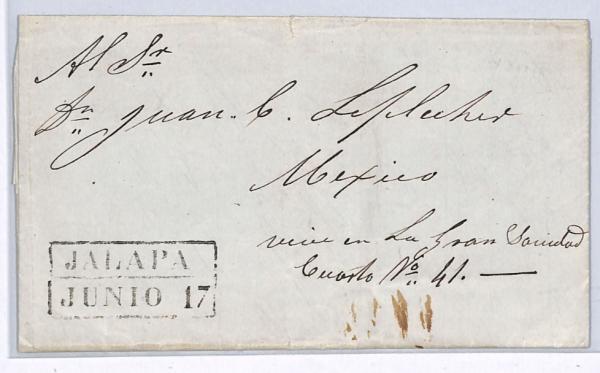 Al Sr
Dn Juan. C.
Mexico
vive en La Gran Sociedad
Cuarto No. 41.
JALAPA
JUNIO 17